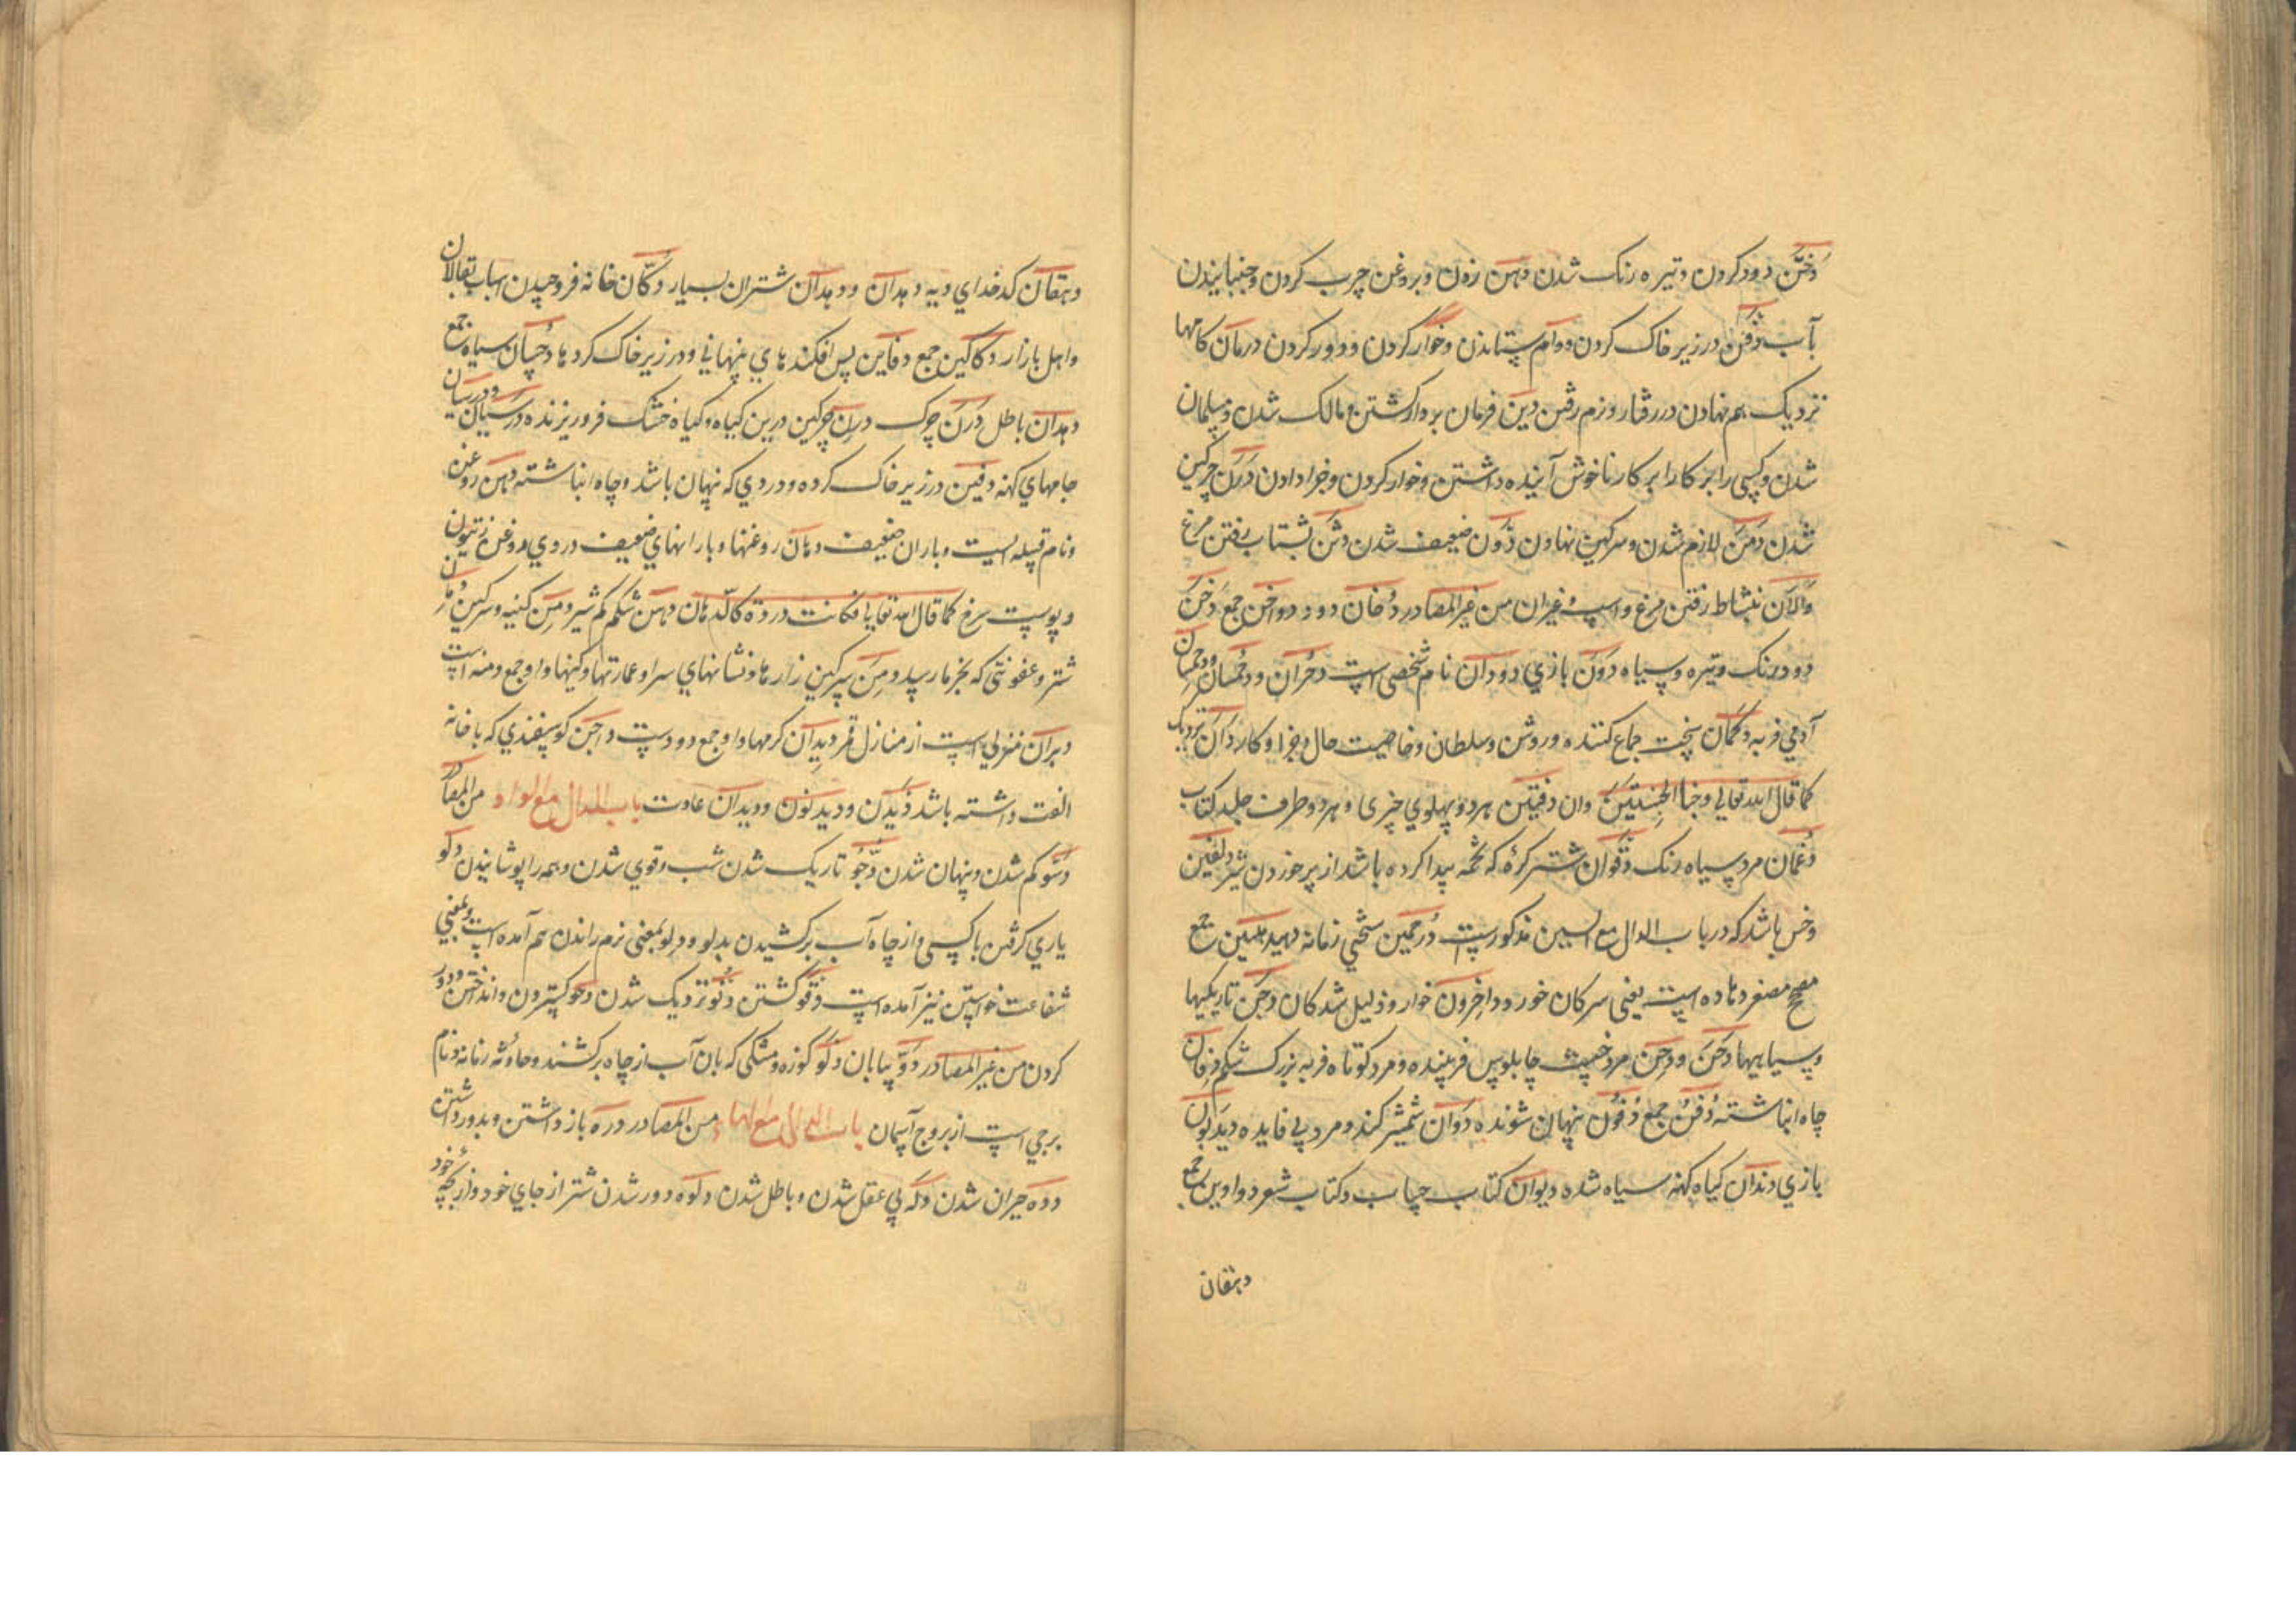 دخن دود کردن و تیره رنک شدن دهن زدن و بروغن چرب کردن و جنبانیدن
آب دفن در زیر خاک کردن و وام ستاندن و خوار کردن و دور کردن درمان کامها
نزدیک بهم نهادن در رفتار و نرم رفتن دین فرمان بردار کشتن و مالک شدن و مسلمان
شدن و کسی را بر کار نا خوش آینده داشتن و خوار کردن و جزا دادن درن چرکین
شدن دمن لازم شدن و سرکین نهادن دون ضعیف شدن دثن بشتاب رفتن مرغ
والان بنشاط رفتن مرغ و اسپ و غیران من غیر المصادر دخان دود دواخن جمع دخن
دود رنک و تیره و سیاه ددن بازی دودان نام شخصی است دحران و دحمسان و دحمسان
آدمی فربه دکمان سخت جماع کننده و روشن و سلطان و خاصیت حال و جزا و کار دان نزدیک
کما قال الله تعالی و جنا الجنتین دان دفتین هر دو پهلوی چیزی و هر دو طرف جلد کتاب
دغمان مرد سیاه رنک دقوان شتر کره که تخمه پیدا کرده باشد از پر خوردن شیر دلغین
دخس باشد که در باب الدال مع السین مذکورست درخمین سختی زمانه دهیدهین جمع
مصحح مصغر دهداه است یعنی سرکان خورد داخرون خوار و ذلیل شدکان دجن تاریکیها
و سیاهیها دحن و دحن مرد خبیث چابلوس فریبنده و مرد کوتاه فربه بزرک شکم دفان
چاه انباشته دفن جمع دفون پنهان شونده ددان شمشیر کند و مرد بی فایده دیدبون
بازی دندان کیاه کهنه سیاه شده دیوان کتاب حساب و کتاب شعر دواوین جمع
دهقان
دهقان کدخدای دیه دهدان و دهدان شتران بسیار دکان خانه فروچیدن اسباب بقالان
و اهل بازار دکاکین جمع دفاین پس افکندهای پنهانی و در زیر خاک کردها دجسان سیاه جمع
دهدان باطل درن چوک درن چرکین درین کیاه و کیاه خشک فرو ریزنده درسیان و درسان
جامهای کهنه دفین در زیر خاک کرده و دردی که پنهان باشد و چاه انباشته دهن روغن
و نام قبیله ایست و باران ضعیف دهان روغنها و بارانهای ضعیف و دردی روغن زیتون
و پوست سرخ کما قال الله تعالی فکانت وردة کالدهان دهن شتر کم شیر دمن کینه و سرکین
شتر و عفونتی که بخرما رسد دمن سرکین زارها و نشانهای سرا و عمارتها و کینها و او جمع دمنه است
دبران منزلی است از منازل قمر دیدان کرمها و او جمع دودست داجن کوسفندی که با خانه
الفت داشته باشد دیدن و دیدنون و دیدان عادت باب الدال مع الواو من المصادر
دسو کم شدن و پنهان شدن دجو تاریک شدن شب و قوی شدن و همه را پوشانیدن دلو
یاری کرفتن با کسی و از چاه آب بر کشیدن بدلو و دلو بمعنی نرم راندن هم آمده است و بمعنی
شفاعت خواستن نیز آمده است دقو کشتن دنو نزدیک شدن دحو کسترون و انداختن و دور
کردن من غیر المصادر دو بیابان دلو کوزه و مشکی که بان آب از چاه بر کشند و حادثه زمانه و نام
برجی است از بروج آسمان باب الدال مع الهاء من المصادر دره باز داشتن و بدور داشتن
دده حیران شدن دله بی عقل شدن و باطل شدن دلوه دور شدن شتر از جای خود و از بچه خود